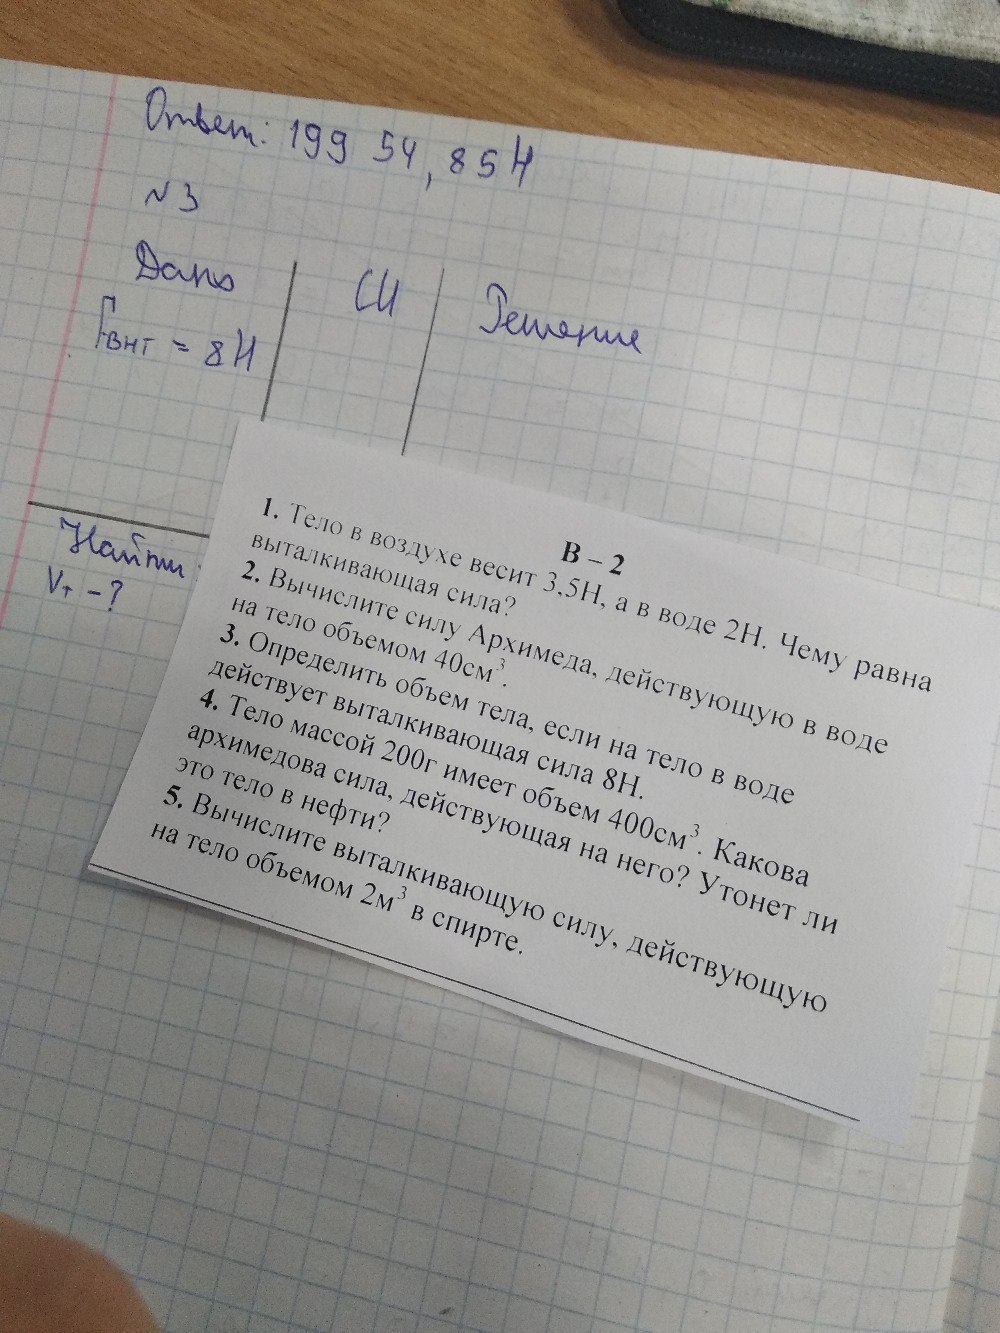 Ответ: 199 54, 85 Н
№3
Дано СИ Решение
Fвнт = 8Н
Найти
Vт -?
В – 2
1. Тело в воздухе весит 3,5Н, а в воде 2Н. Чему равна
выталкивающая сила?
2. Вычислите силу Архимеда, действующую в воде
на тело объемом 40см³.
3. Определить объем тела, если на тело в воде
действует выталкивающая сила 8Н.
4. Тело массой 200г имеет объем 400см³. Какова
архимедова сила, действующая на него? Утонет ли
это тело в нефти?
5. Вычислите выталкивающую силу, действующую
на тело объемом 2м³ в спирте.